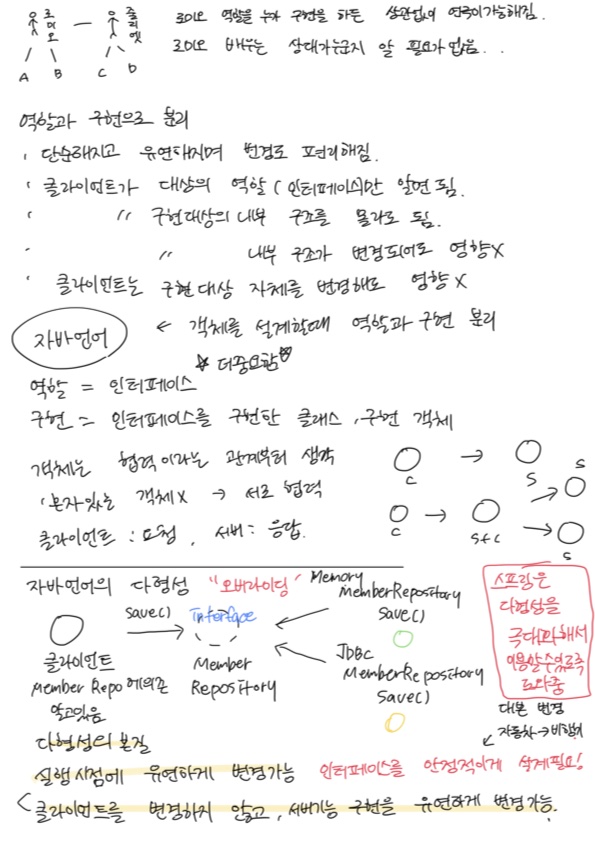 로미오 — 줄리엣
A B C D
로미오 역할을 누가 구현을 하든 상관없이 연극이 가능해짐.
로미오 배우는 상대가 누군지 알 필요가 없음.
역할과 구현으로 분리
단순해지고 유연해지며 변경도 편리해짐.
클라이언트가 대상의 역할(인터페이스)만 알면됨.
〃 구현대상의 내부 구조를 몰라도 됨.
〃 내부 구조가 변경되어도 영향X
클라이언트는 구현대상 자체를 변경해도 영향X
자바언어 ← 객체를 설계할때 역할과 구현 분리
☆ 더중요함 ☆
역할 = 인터페이스
구현 = 인터페이스를 구현한 클래스, 구현 객체
객체는 협력이라는 관계부터 생각
혼자있는 객체X → 서로 협력
클라이언트 : 요청, 서버 : 응답.
C → S
C → S+C → S
S
자바언어의 다형성 "오버라이딩"
save()
Interface
Member
Repository
Memory
MemberRepository
save()
JDBC
MemberRepository
save()
클라이언트
Member Repo에의존
알고있음
스프링은
다형성을
극대화해서
이용할수있도록
도와줌
대본 변경
자동차→비행기
다형성의 본질
실행시점에 유연하게 변경가능
인터페이스를 안정적이게 설계필요!
클라이언트를 변경하지 않고, 서버기능 구현을 유연하게 변경가능.